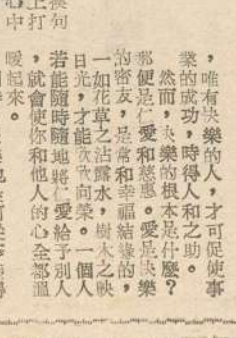 換句
上打
心中
，唯有快樂的人，才可促使事
業的成功，時得人和之助。
然而，快樂的根本是什麼？
那便是仁愛和慈惠。愛是快樂
的密友，是常和幸福結緣的，
一如花草之沾露水，樹木之映
日光，才能欣欣向榮。一個人
若能隨時隨地將仁愛給予別人
，就會使你和他人的心全都溫
暖起來。